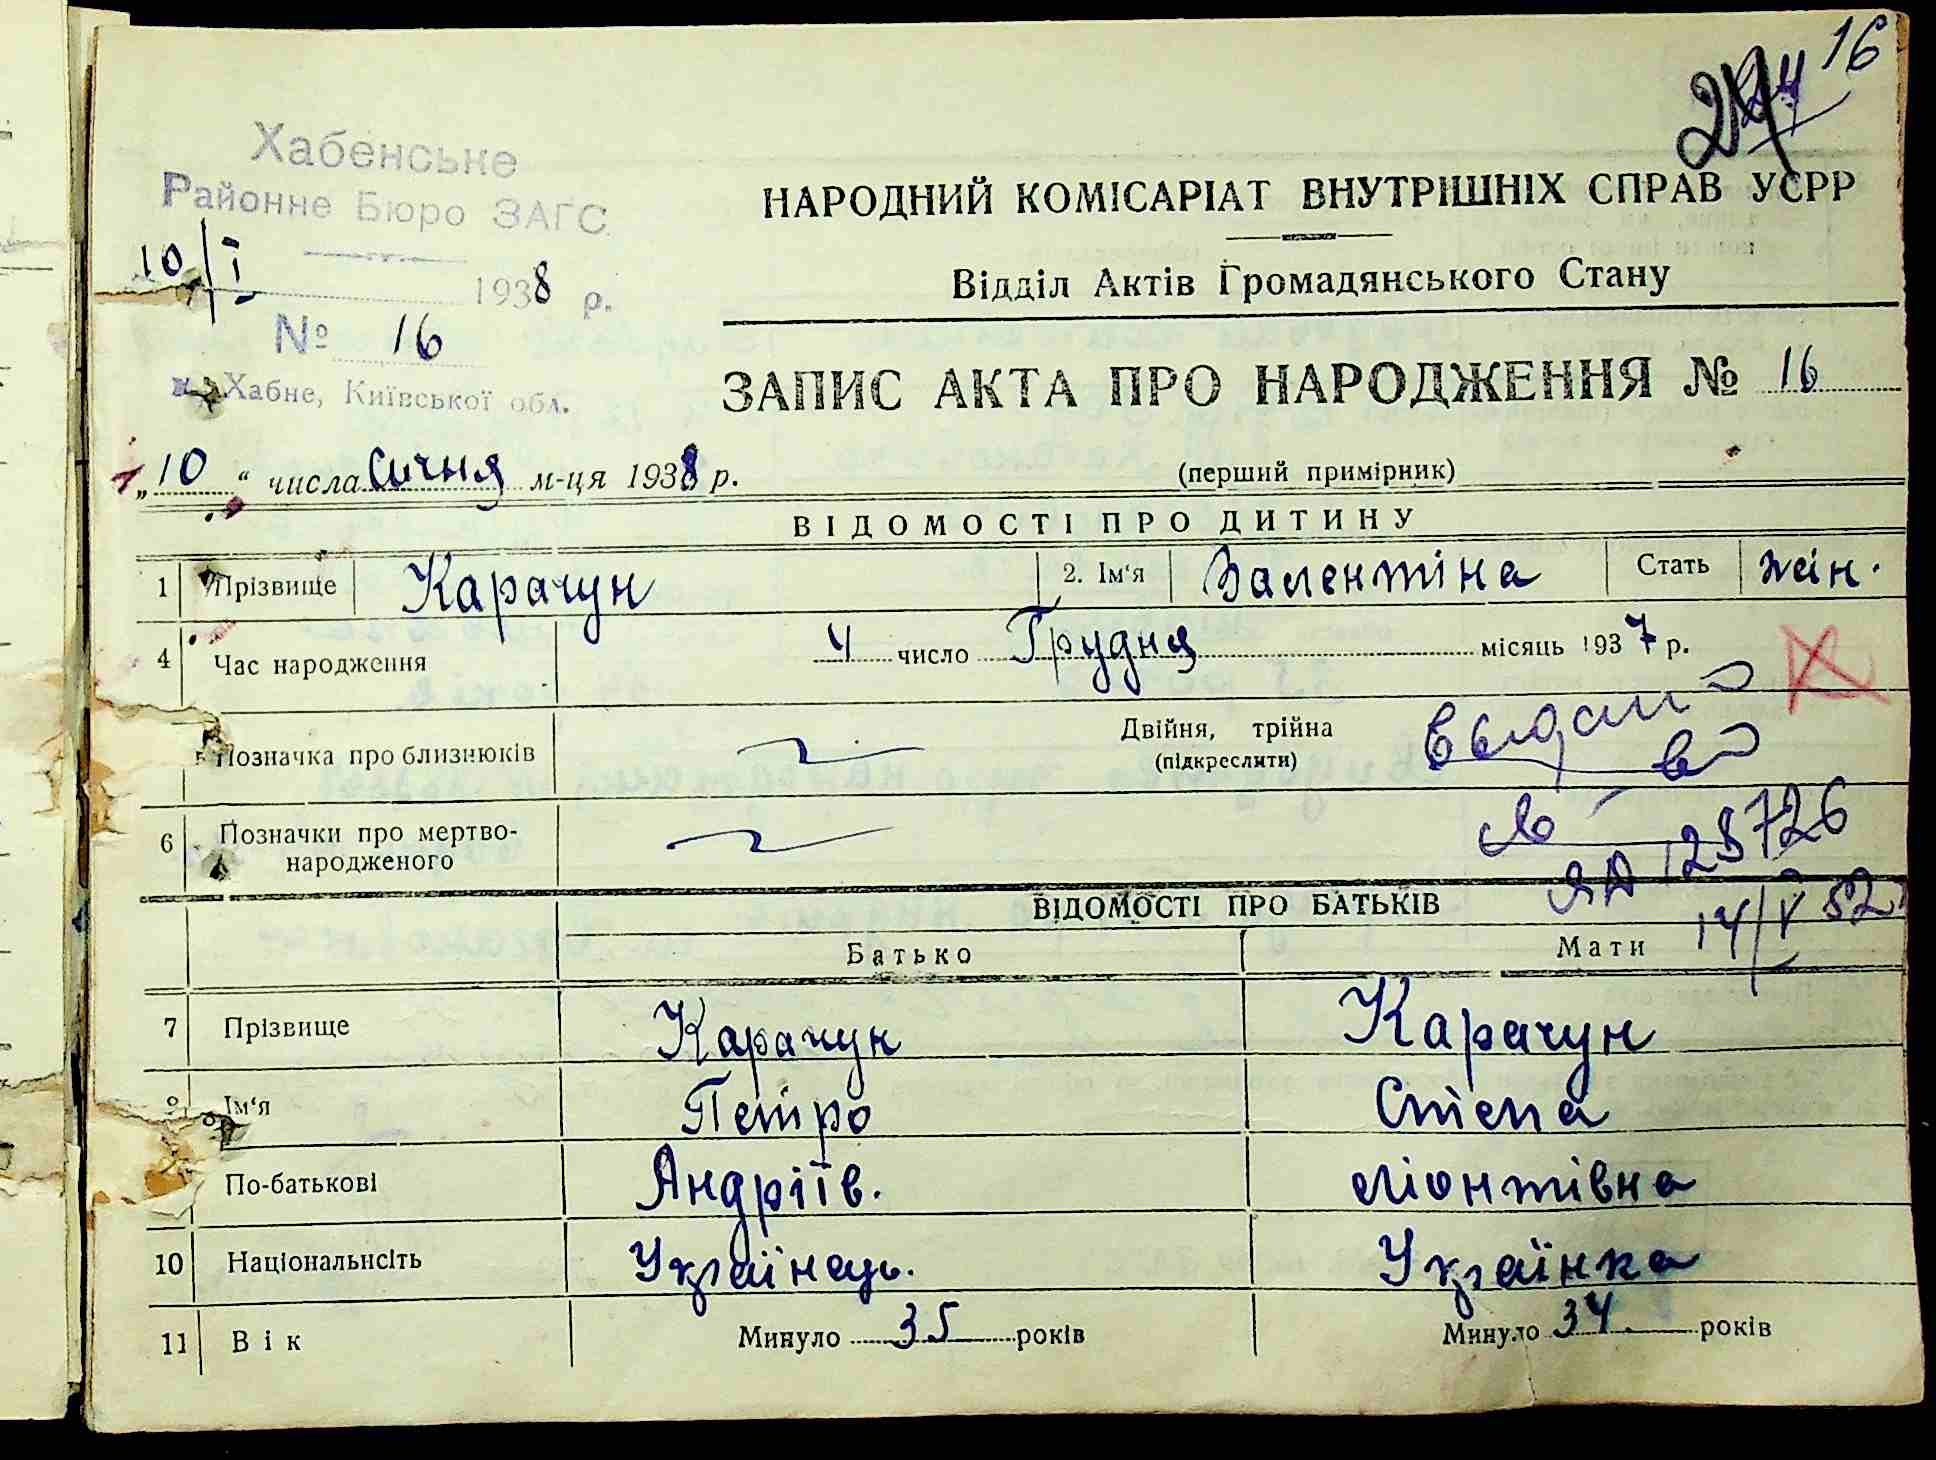 16
24
Хабенське
Районне Бюро ЗАГС
10/I 1938 р.
№ 16
м. Хабне, Київської обл.
НАРОДНИЙ КОМІСАРІАТ ВНУТРІШНІХ СПРАВ УСРР
Відділ Актів Громадянського Стану
ЗАПИС АКТА ПРО НАРОДЖЕННЯ № 16
„10“ числа Січня м-ця 1938 р.
(перший примірник)
ВІДОМОСТІ ПРО ДИТИНУ
1 Прізвище Карачун 2. Ім'я Валентіна Стать жін.
4 Час народження 4 число Грудня місяць 1937 р.
5 Позначка про близнюків Двійня, трійна
(підкреслити)
6 Позначки про мертво-
народженого
ЯД 125726
14/V 52
ВІДОМОСТІ ПРО БАТЬКІВ
Батько Мати
7 Прізвище Карачун Карачун
8 Ім'я Петро Степа
По-батькові Андріїв. Ліонтівна
10 Національнсіть Українець. Українка
11 Вік Минуло 35 років Минуло 34 років